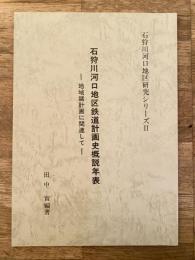 石狩川河口地区研究シリーズⅡ
石狩川河口地区鉄道計画史概説年表
―地域開計画に関連して―
田中 實編著